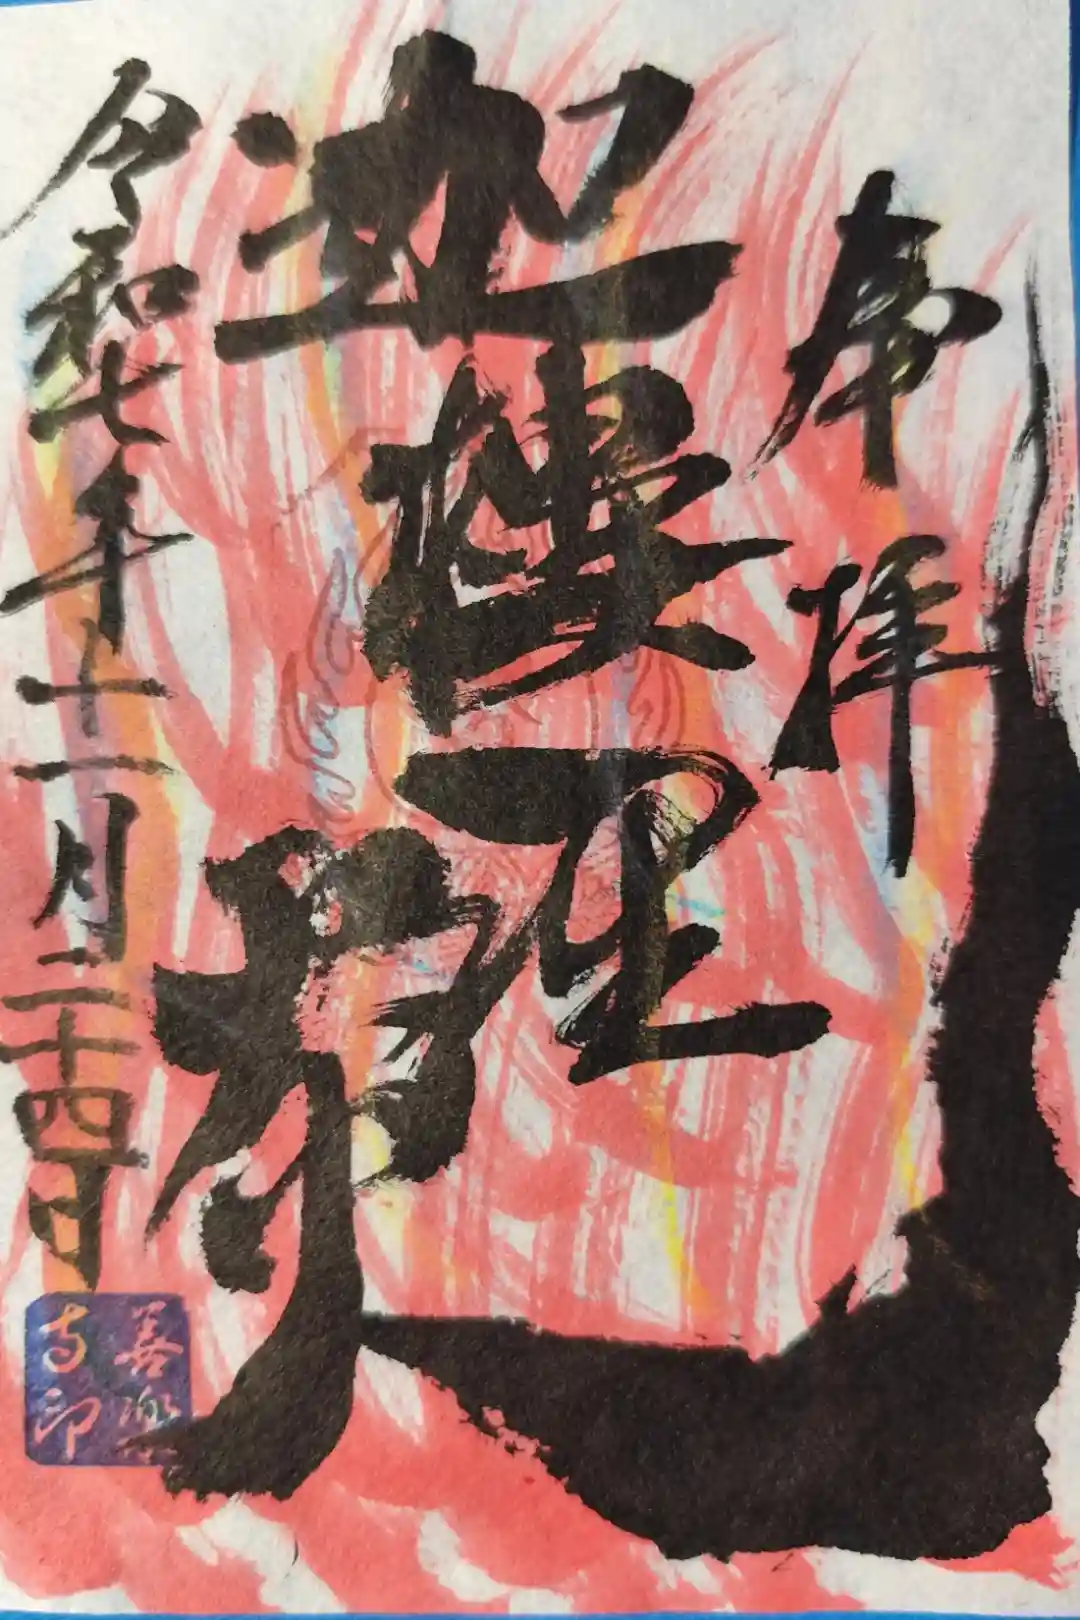 奉拝
迦樓羅
令和七年十一月二十四日
善樂
寺印